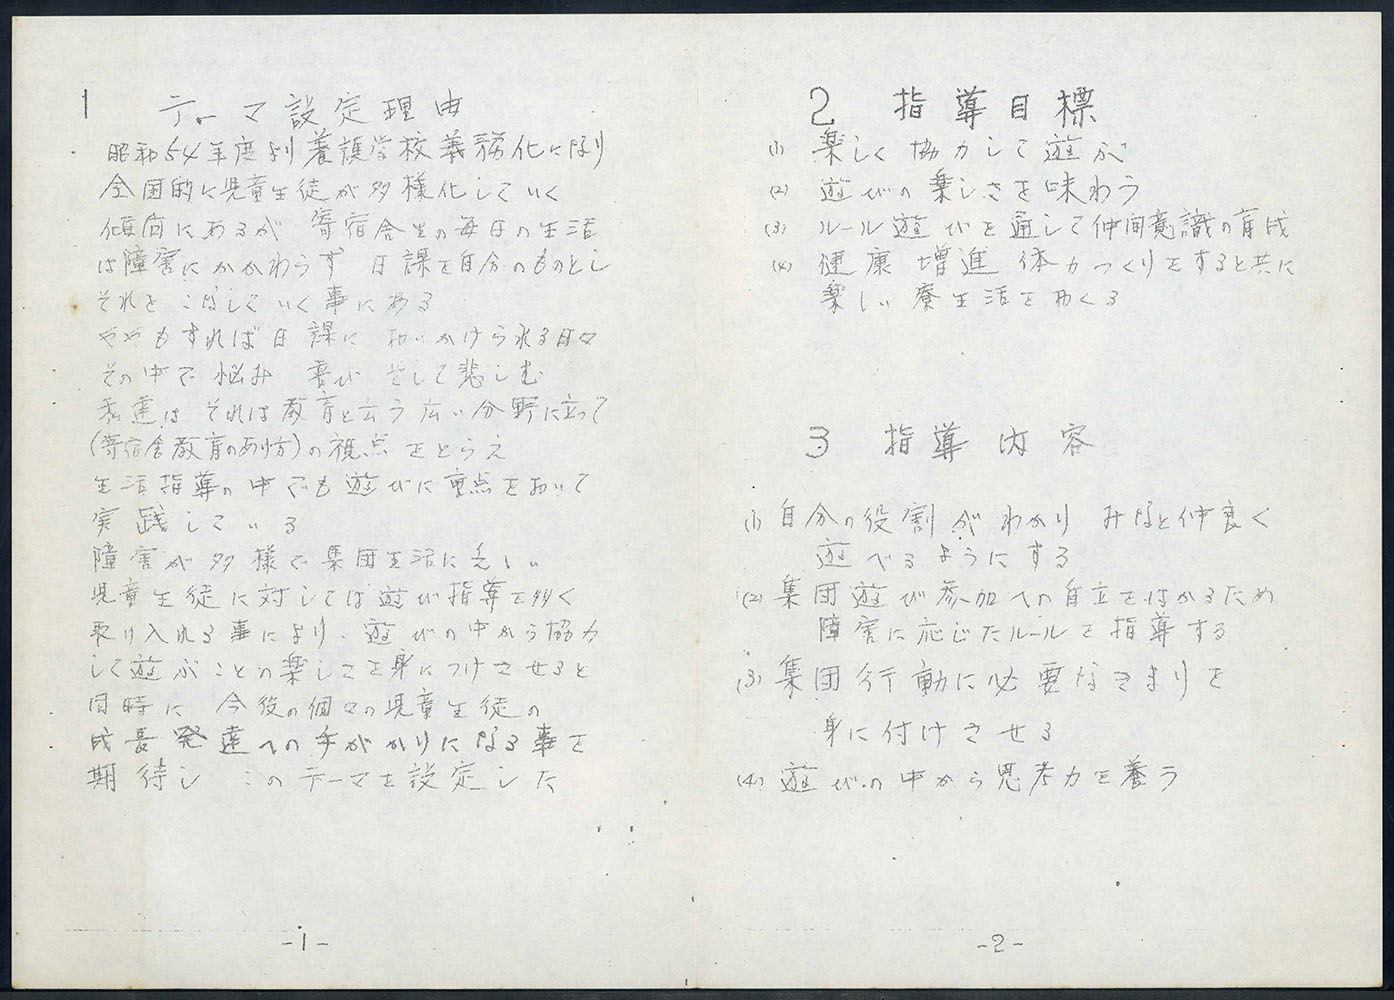 1 テーマ設定理由
昭和54年度より養護学校義務化になり
全国的に児童生徒が多様化していく
傾向にあるが 寄宿舎生の毎日の生活
は障害にかかわらず 日課を自分のものとし
それを こなしていく事にある
ややもすれば日課に 追いかけられる日々
その中で悩み 喜び そして悲しむ
私達は それは教育と云う広い分野に立って
(寄宿舎教育のあり方)の視点をとらえ
生活指導の中でも遊びに重点をおいて
実践している
障害が多様で集団生活に乏しい
児童生徒に対しては遊び指導を多く
取り入れる事により、遊びの中から協力
して遊ぶことの楽しさを身につけさせると
同時に 今後の個々の児童生徒の
成長発達への手がかりになる事を
期待し このテーマを設定した
-1-
2 指導目標
(1) 楽しく協力して遊ぶ
(2) 遊びの楽しさを味わう
(3) ルール遊びを通して仲間意識の育成
(4) 健康増進 体力つくりをすると共に
楽しい寮生活をおくる
3 指導内容
(1) 自分の役割がわかり みなと仲良く
遊べるようにする
(2) 集団遊び参加への自立をはかるため
障害に応じたルールを指導する
(3) 集団行動に必要なきまりを
身に付けさせる
(4) 遊びの中から思考力を養う
-2-